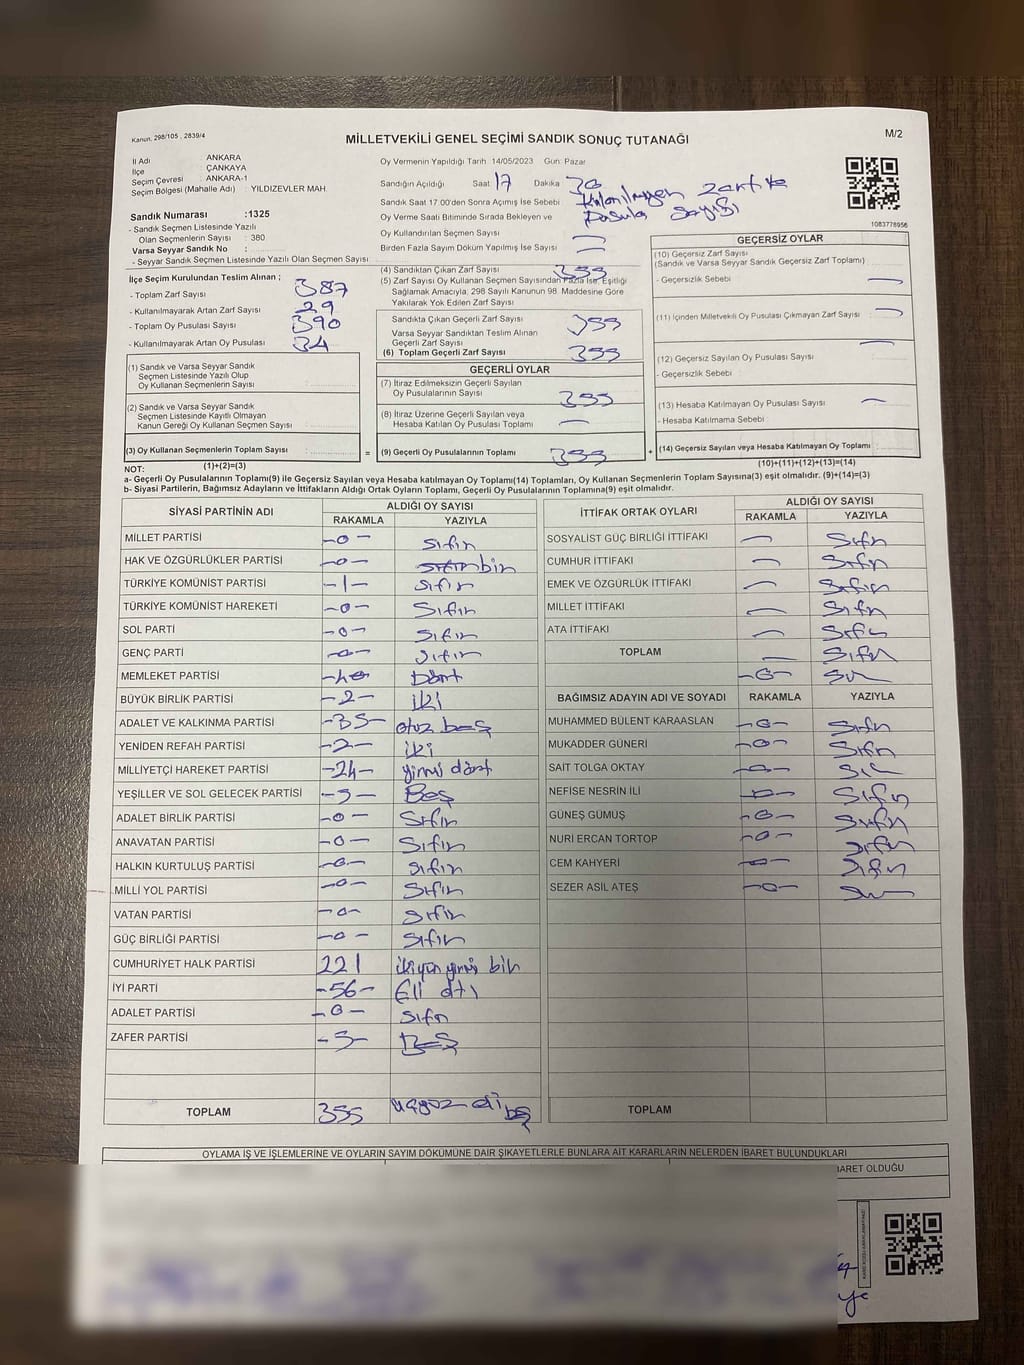 Kanun. 298/105 , 2839/4
MİLLETVEKİLİ GENEL SEÇİMİ SANDIK SONUÇ TUTANAĞI
M/2
İl Adı ANKARA
İlçe ÇANKAYA
Seçim Çevresi ANKARA-1
Seçim Bölgesi (Mahalle Adı) : YILDIZEVLER MAH.
Sandık Numarası :1325
- Sandık Seçmen Listesinde Yazılı
Olan Seçmenlerin Sayısı : 380
Varsa Seyyar Sandık No :
- Seyyar Sandık Seçmen Listesinde Yazılı Olan Seçmen Sayısı
Oy Vermenin Yapıldığı Tarih 14/05/2023 Gün: Pazar
Sandığın Açıldığı Saat 17 Dakika 30
Sandık Saat 17.00'den Sonra Açımış İse Sebebi Kullanılmayan zarf ve
Oy Verme Saati Bitiminde Sırada Bekleyen ve Pusula sayısı
Oy Kullandırılan Seçmen Sayısı —
Birden Fazla Sayım Döküm Yapılmış İse Sayısı —
1083778956
İlçe Seçim Kurulundan Teslim Alınan ;
- Toplam Zarf Sayısı 387
- Kullanılmayarak Artan Zarf Sayısı 29
- Toplam Oy Pusulası Sayısı 390
- Kullanılmayarak Artan Oy Pusulası 34
(1) Sandık ve Varsa Seyyar Sandık
Seçmen Listesinde Yazılı Olup
Oy Kullanan Seçmenlerin Sayısı :
(2) Sandık ve Varsa Seyyar Sandık
Seçmen Listesinde Kayıtlı Olmayan
Kanun Gereği Oy Kullanan Seçmen Sayısı :
(3) Oy Kullanan Seçmenlerin Toplam Sayısı :
(1)+(2)=(3)
(4) Sandıktan Çıkan Zarf Sayısı 355
(5) Zarf Sayısı Oy Kullanan Seçmen Sayısından Fazla İse, Eşitliği
Sağlamak Amacıyla, 298 Sayılı Kanunun 98. Maddesine Göre
Yakılarak Yok Edilen Zarf Sayısı
Sandıkta Çıkan Geçerli Zarf Sayısı 355
Varsa Seyyar Sandıktan Teslim Alınan
Geçerli Zarf Sayısı
(6) Toplam Geçerli Zarf Sayısı 355
GEÇERLİ OYLAR
(7) İtiraz Edilmeksizin Geçerli Sayılan
Oy Pusulalarının Sayısı 355
(8) İtiraz Üzerine Geçerli Sayılan veya
Hesaba Katılan Oy Pusulası Toplamı —
= (9) Geçerli Oy Pusulalarının Toplamı 355 +
GEÇERSİZ OYLAR
(10) Geçersiz Zarf Sayısı
(Sandık ve Varsa Seyyar Sandık Geçersiz Zarf Toplamı)
- Geçersizlik Sebebi —
(11) İçinden Milletvekili Oy Pusulası Çıkmayan Zarf Sayısı —
(12) Geçersiz Sayılan Oy Pusulası Sayısı —
- Geçersizlik Sebebi
(13) Hesaba Katılmayan Oy Pusulası Sayısı —
- Hesaba Katılmama Sebebi
(14) Geçersiz Sayılan veya Hesaba Katılmayan Oy Toplamı
(10)+(11)+(12)+(13)=(14)
NOT:
a- Geçerli Oy Pusulalarının Toplamı(9) ile Geçersiz Sayılan veya Hesaba katılmayan Oy Toplamı(14) Toplamları, Oy Kullanan Seçmenlerin Toplam Sayısına(3) eşit olmalıdır. (9)+(14)=(3)
b- Siyasi Partilerin, Bağımsız Adayların ve İttifakların Aldığı Ortak Oyların Toplamı, Geçerli Oy Pusulalarının Toplamına(9) eşit olmalıdır.
SİYASİ PARTİNİN ADI ALDIĞI OY SAYISI
RAKAMLA YAZIYLA
MİLLET PARTİSİ -0- sıfır
HAK VE ÖZGÜRLÜKLER PARTİSİ -0- sıfır bir
TÜRKİYE KOMÜNİST PARTİSİ -1- sıfır
TÜRKİYE KOMÜNİST HAREKETİ -0- sıfır
SOL PARTİ -0- sıfır
GENÇ PARTİ -0- sıfır
MEMLEKET PARTİSİ -4- Dört
BÜYÜK BİRLİK PARTİSİ -2- iki
ADALET VE KALKINMA PARTİSİ -35- otuz beş
YENİDEN REFAH PARTİSİ -2- iki
MİLLİYETÇİ HAREKET PARTİSİ -24- yirmi dört
YEŞİLLER VE SOL GELECEK PARTİSİ -5- Beş
ADALET BİRLİK PARTİSİ -0- sıfır
ANAVATAN PARTİSİ -0- sıfır
HALKIN KURTULUŞ PARTİSİ -0- sıfır
MİLLİ YOL PARTİSİ -0- sıfır
VATAN PARTİSİ -0- sıfır
GÜÇ BİRLİĞİ PARTİSİ -0- sıfır
CUMHURİYET HALK PARTİSİ 221 ikiyüz yirmi bir
İYİ PARTİ -56- Elli altı
ADALET PARTİSİ -0- sıfır
ZAFER PARTİSİ -5- Beş
TOPLAM 355 üçyüz elli beş
İTTİFAK ORTAK OYLARI ALDIĞI OY SAYISI
RAKAMLA YAZIYLA
SOSYALİST GÜÇ BİRLİĞİ İTTİFAKI — sıfır
CUMHUR İTTİFAKI — sıfır
EMEK VE ÖZGÜRLÜK İTTİFAKI — sıfır
MİLLET İTTİFAKI — sıfır
ATA İTTİFAKI — sıfır
TOPLAM — sıfır
-0-
BAĞIMSIZ ADAYIN ADI VE SOYADI RAKAMLA YAZIYLA
MUHAMMED BÜLENT KARAASLAN -0- sıfır
MUKADDER GÜNERİ -0- sıfır
SAİT TOLGA OKTAY -0-
NEFİSE NESRİN İLİ -0- sıfır
GÜNEŞ GÜMÜŞ -0- sıfır
NURİ ERCAN TORTOP -0- sıfır
CEM KAHYERİ -0- sıfır
SEZER ASIL ATEŞ -0-
TOPLAM
OYLAMA İŞ VE İŞLEMLERİNE VE OYLARIN SAYIM DÖKÜMÜNE DAİR ŞİKAYETLERLE BUNLARA AİT KARARLARIN NELERDEN İBARET BULUNDUKLARI
BARET OLDUĞU